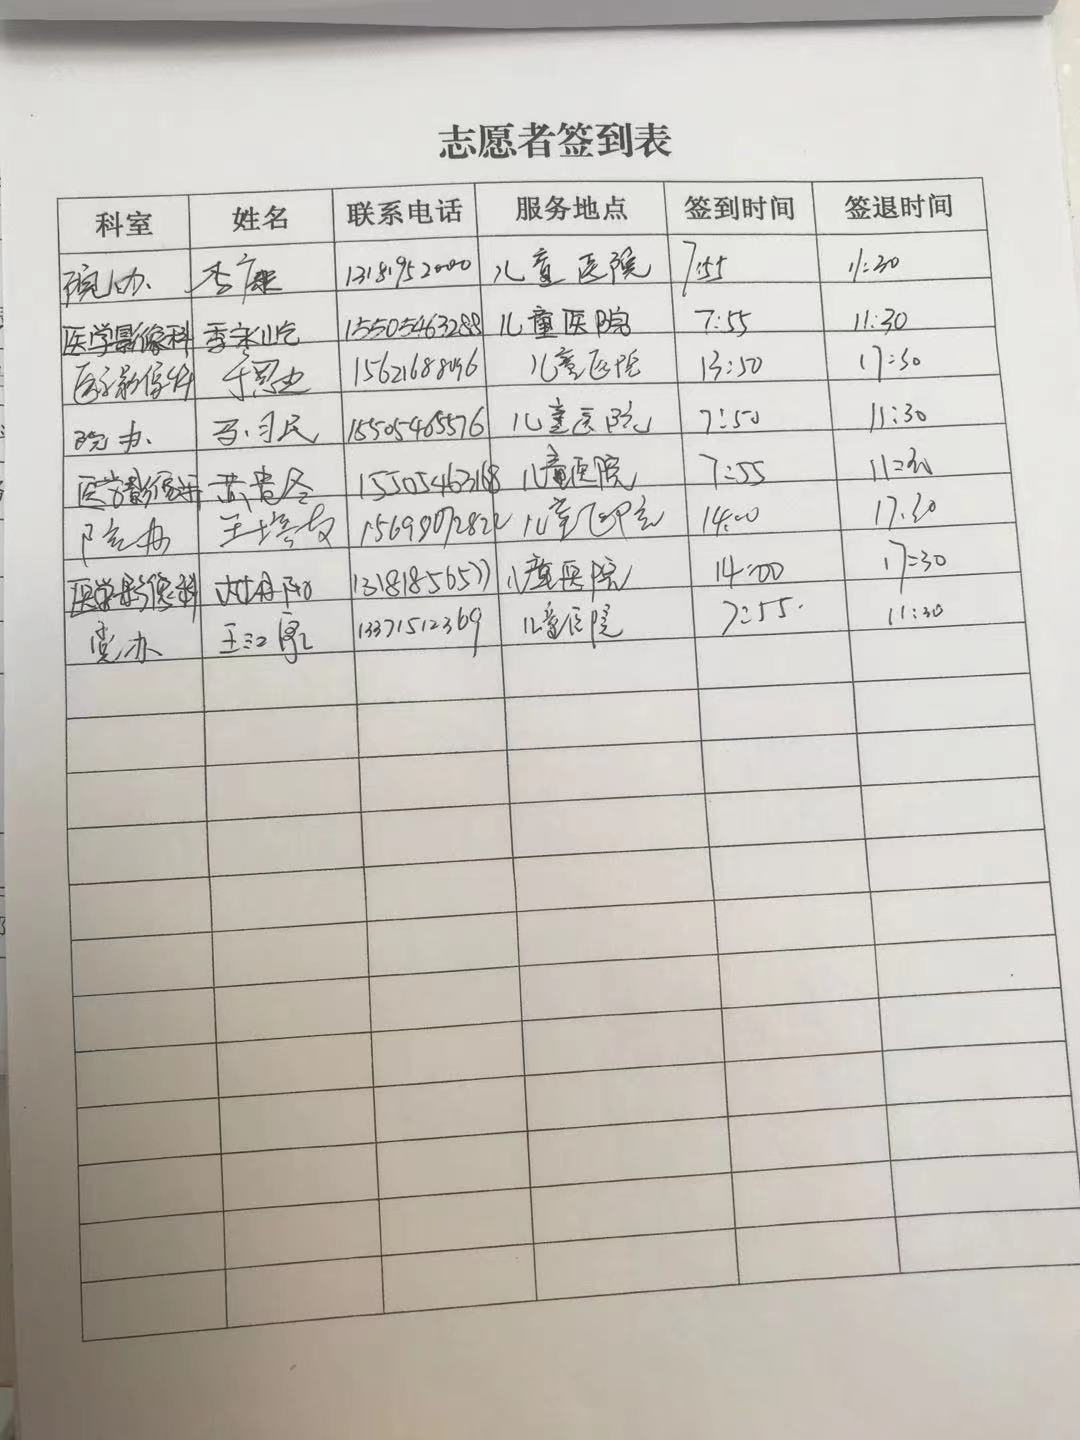 志愿者签到表
科室 姓名 联系电话 服务地点 签到时间 签退时间
院办 李康 儿童医院 7:55 11:30
医学影像科 15505463288 儿童医院 7:55 11:30
医学影像科 儿童医院 13:50 17:30
院办 马习民 15505465576 儿童医院 7:50 11:30
医学影像科 15505463168 儿童医院 7:55 11:30
院办 15698072822 儿童医院 14:00 17:30
医学影像科 13181856577 儿童医院 14:00 17:30
党办 13371512369 儿童医院 7:55 11:30